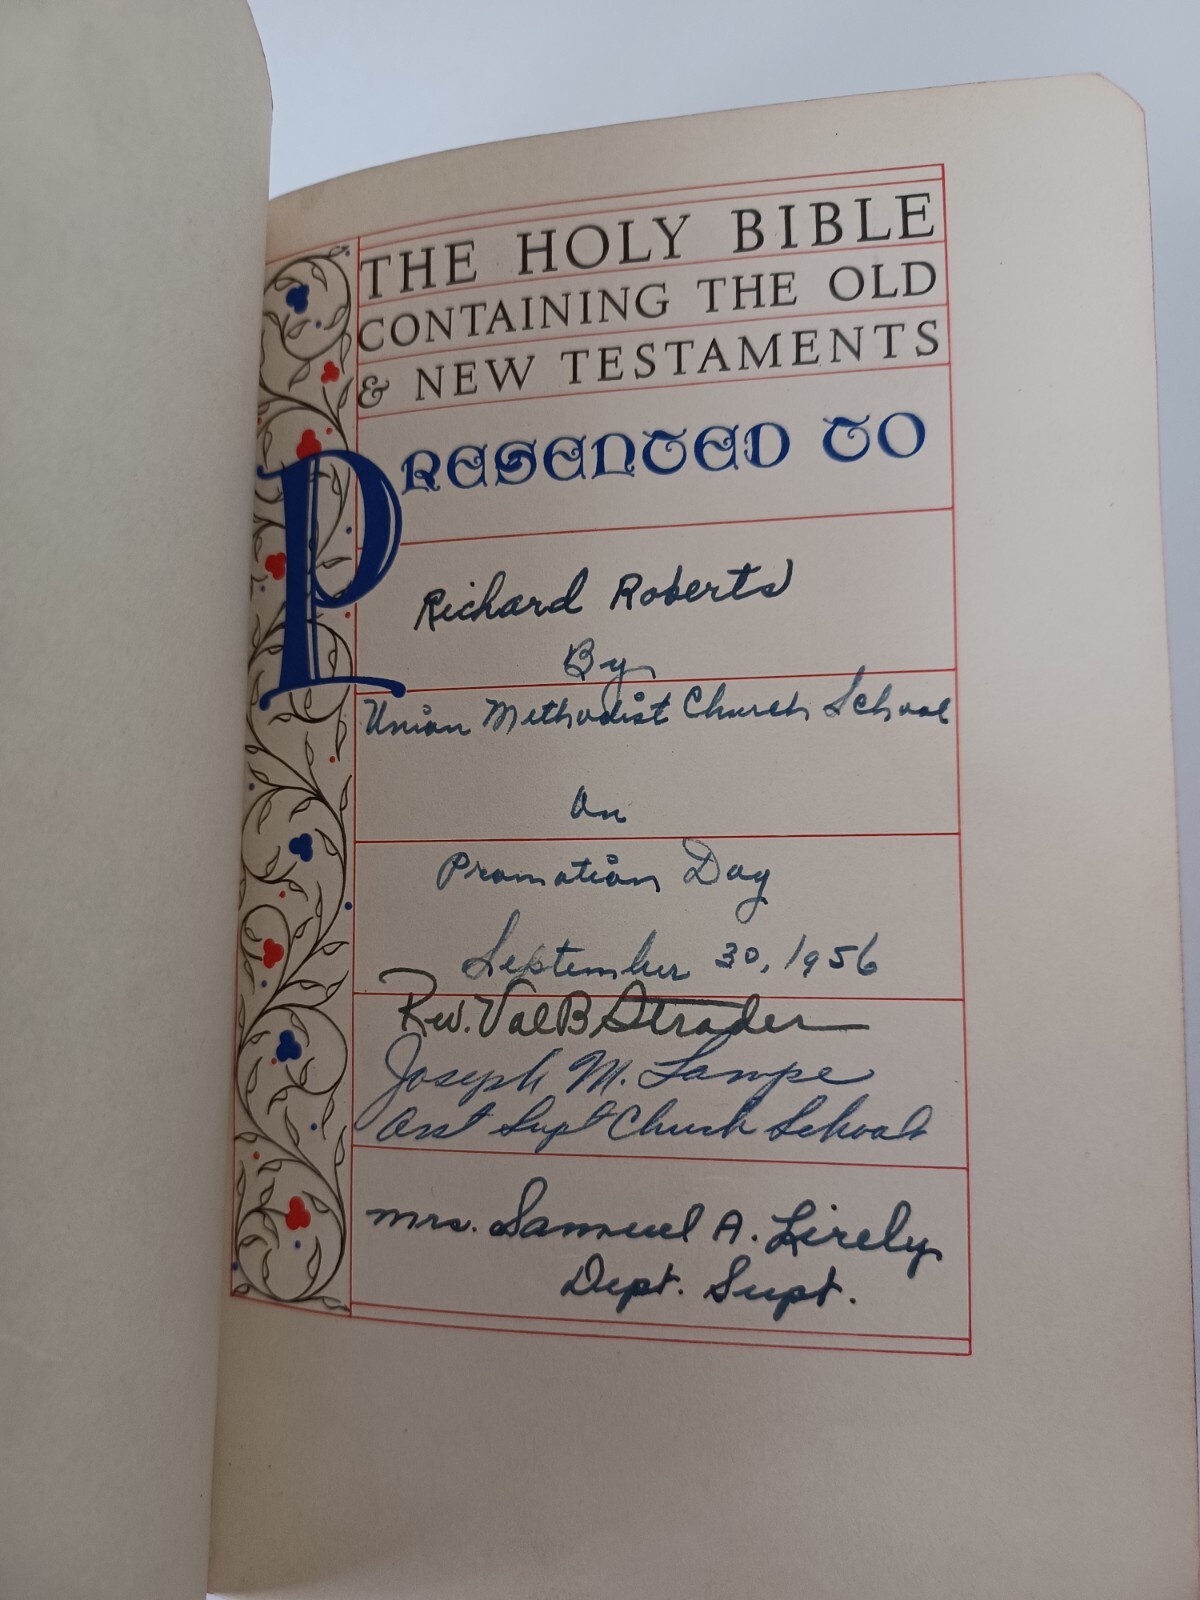 THE HOLY BIBLE
CONTAINING THE OLD
& NEW TESTAMENTS
PRESENTED TO
Richard Roberts
By
Union Methodist Church School
on
Promotion Day
September 30, 1956
Rev. Val B Strader
Joseph M. Lampe
Asst Supt Church School
Mrs. Samuel A. Lirely
Dept. Supt.